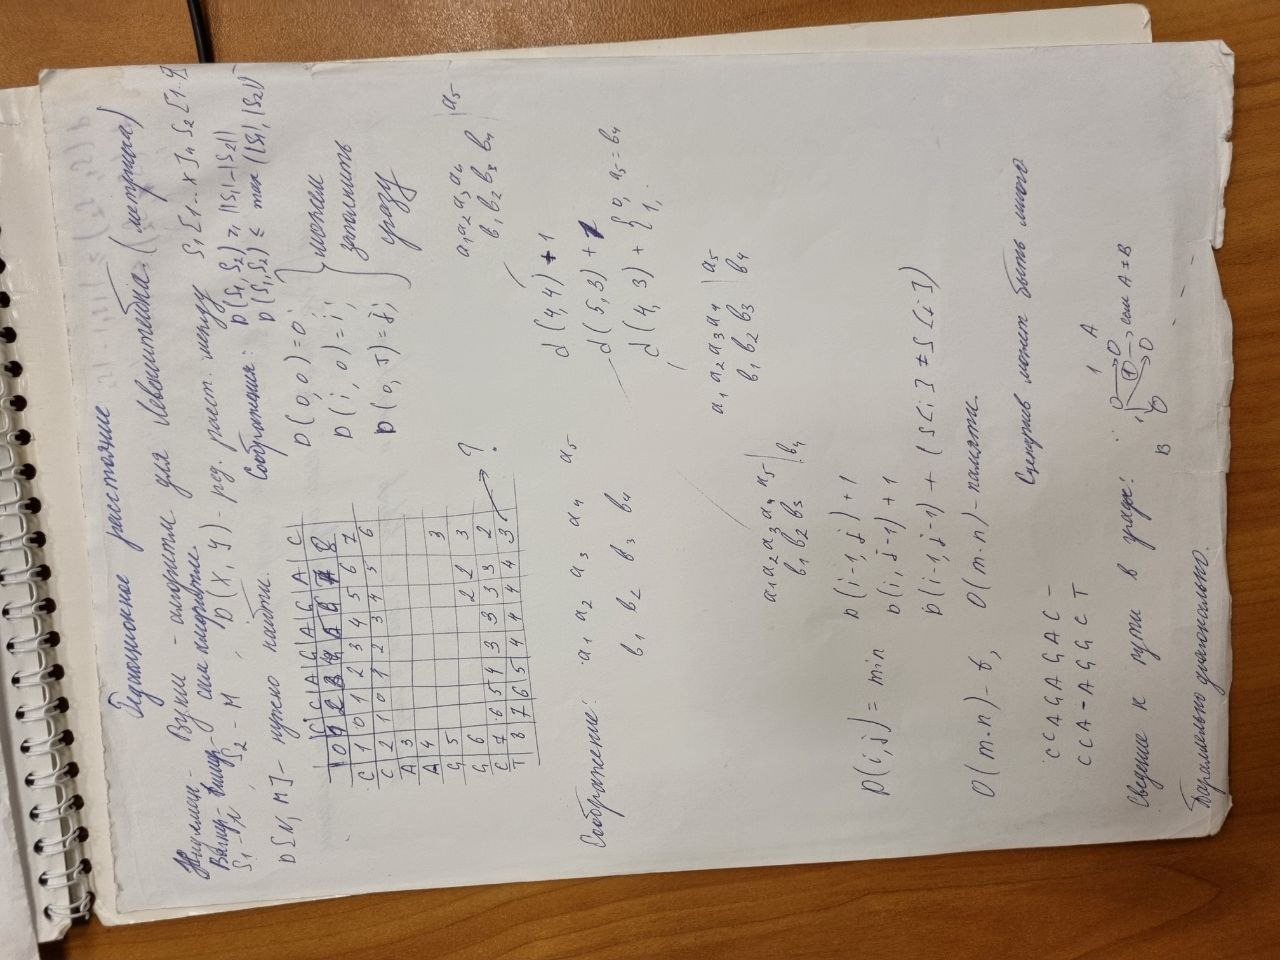 Редакционное расстояние
Нидлман - Вунш - алгоритм для Левенштейна. (метрика)
Вагнер - Фишер - сам алгоритм.
S₁ - N, S₂ - M, D(X, Y) - ред. расст. между S₁[1..X] и S₂[1..Y]
D[N, M] - нужно найти.
Соображения: D(S₁, S₂) ≥ ||S₁| - |S₂||
D(S₁, S₂) ≤ max(|S₁|, |S₂|)
C C A G A G A C
0 1 2 3 4 5 6 7 8
C 1 0 1 2 3 4 5 6 7
C 2 1 0 1 2 3 4 5 6
A 3
A 4
G 5 3
G 6 2 2 3
C 7 6 5 4 3 3 3 3 2
T 8 7 6 5 4 4 4 4 3 ?
D(0, 0) = 0;
D(i, 0) = i;
D(0, J) = j;
можем
заполнить
сразу
a₁ a₂ a₃ a₄ | a₅
b₁ b₂ b₃ b₄
Соображение: a₁ a₂ a₃ a₄ a₅
b₁ b₂ b₃ b₄
d(4, 4) + 1
d(5, 3) + 1
d(4, 3) + { 0, a₅ = b₄
1,
a₁ a₂ a₃ a₄ | a₅
b₁ b₂ b₃ b₄
a₁ a₂ a₃ a₄ a₅ |
b₁ b₂ b₃ | b₄
D(i, j) = min
D(i-1, j) + 1
D(i, j-1) + 1
D(i-1, j-1) + (S[i] ≠ S[j])
O(m·n) - t, O(m·n) - памяти.
Сценариев может быть много
C C A G A G A C -
C C A - A G G C T
Сведение к пути в графе:
1 A
1 → если A ≠ B
1
B
Параллельно диагонально.